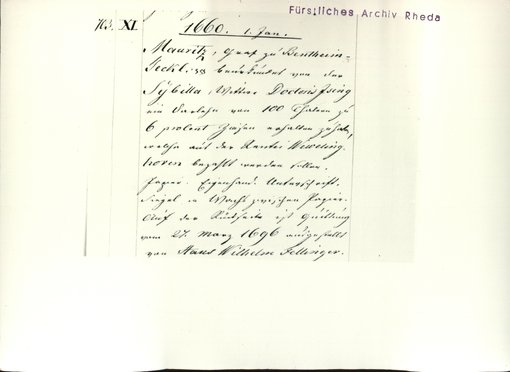 Fürstliches Archiv Rheda
XI.
1660. 1. Jan.
Mauritz, Graf zu Bentheim-
Teckl. beurkundet von der
Sybilla, Wittwe
ein Darlehn von 100 Thalern zu
6 procent Zinsen erhalten zu haben,
welche aus der Rentei Weveling-
hoven bezahlt werden sollen.
Papier. Eigenhänd. Unterschrift.
Siegel in Wachs zwischen Papier.
Auf der Rückseite ist Quittung
vom 27. März 1696 ausgestellt
von Hans Wilhelm Fellinger.